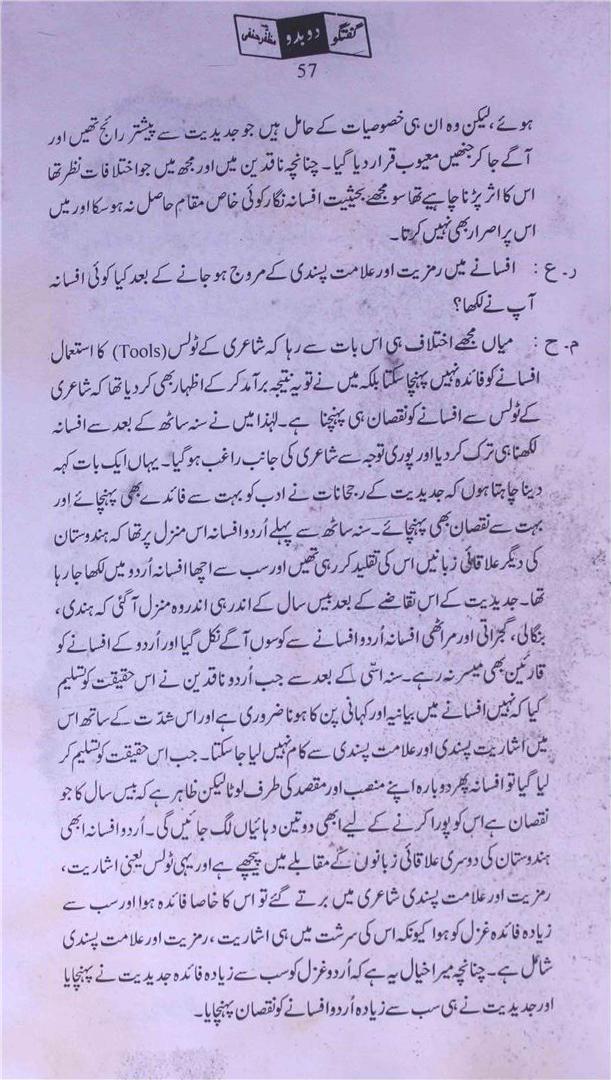 گفتگو دوبدو مظفر حنفی
57
ہوئے، لیکن وہ ان ہی خصوصیات کے حامل ہیں جو جدیدیت سے پیشتر رائج تھیں اور
آگے جا کر جنھیں معیوب قرار دیا گیا۔ چنانچہ ناقدین میں اور مجھ میں جو اختلافات نظر تھا
اس کا اثر پڑنا چاہیے تھا سو مجھے بحیثیت افسانہ نگار کوئی خاص مقام حاصل نہ ہو سکا اور میں
اس پر اصرار بھی نہیں کرتا۔
ر۔ع : افسانے میں رمزیت اور علامت پسندی کے مروج ہو جانے کے بعد کیا کوئی افسانہ
آپ نے لکھا؟
م۔ح : میاں مجھے اختلاف ہی اس بات سے رہا کہ شاعری کے ٹولس (Tools) کا استعمال
افسانے کو فائدہ نہیں پہنچا سکتا بلکہ میں نے تو یہ نتیجہ برآمد کر کے اظہار بھی کر دیا تھا کہ شاعری
کے ٹولس سے افسانے کو نقصان ہی پہنچنا ہے۔ لہٰذا میں نے سنہ ساٹھ کے بعد سے افسانہ
لکھنا ہی ترک کر دیا اور پوری توجہ سے شاعری کی جانب راغب ہو گیا۔ یہاں ایک بات کہہ
دینا چاہتا ہوں کہ جدیدیت کے رجحانات نے ادب کو بہت سے فائدے بھی پہنچائے اور
بہت سے نقصان بھی پہنچائے۔ سنہ ساٹھ سے پہلے اُردو افسانہ اس منزل پر تھا کہ ہندوستان
کی دیگر علاقائی زبانیں اس کی تقلید کر رہی تھیں اور سب سے اچھا افسانہ اُردو میں لکھا جا رہا
تھا۔ جدیدیت کے اس تقاضے کے بعد بیس سال کے اندر ہی اندر وہ منزل آ گئی کہ ہندی،
بنگالی، گجراتی اور مراٹھی افسانہ اُردو افسانے سے کوسوں آگے نکل گیا اور اُردو کے افسانے کو
قارئین بھی میسر نہ رہے۔ سنہ اسّی کے بعد سے جب اُردو ناقدین نے اس حقیقت کو تسلیم
کیا کہ نہیں افسانے میں بیانیہ اور کہانی پن کا ہونا ضروری ہے اور اس شدّت کے ساتھ اس
میں اشاریت پسندی اور علامت پسندی سے کام نہیں لیا جا سکتا۔ جب اس حقیقت کو تسلیم کر
لیا گیا تو افسانہ پھر دوبارہ اپنے منصب اور مقصد کی طرف لوٹا لیکن ظاہر ہے کہ بیس سال کا جو
نقصان ہے اس کو پورا کرنے کے لیے ابھی دو تین دہائیاں لگ جائیں گی۔ اُردو افسانہ ابھی
ہندوستان کی دوسری علاقائی زبانوں کے مقابلے میں پیچھے ہے اور یہی ٹولس یعنی اشاریت،
رمزیت اور علامت پسندی شاعری میں برتے گئے تو اس کا خاصا فائدہ ہوا اور سب سے
زیادہ فائدہ غزل کو ہوا کیونکہ اس کی سرشت میں ہی اشاریت، رمزیت اور علامت پسندی
شامل ہے۔ چنانچہ میرا خیال یہ ہے کہ اُردو غزل کو سب سے زیادہ فائدہ جدیدیت نے پہنچایا
اور جدیدیت نے ہی سب سے زیادہ اُردو افسانے کو نقصان پہنچایا۔